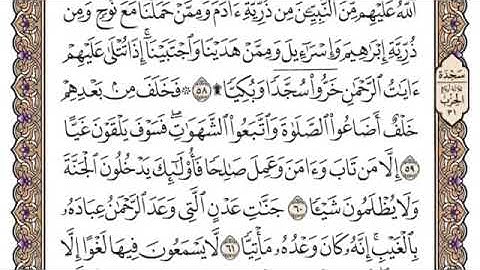 ٱللَّهُ عَلَيْهِم مِّنَ ٱلنَّبِيِّـۧنَ مِن ذُرِّيَّةِ ءَادَمَ وَمِمَّنْ حَمَلْنَا مَعَ نُوحٍ وَمِن
ذُرِّيَّةِ إِبْرَٰهِيمَ وَإِسْرَٰٓءِيلَ وَمِمَّنْ هَدَيْنَا وَٱجْتَبَيْنَآ ۚ إِذَا تُتْلَىٰ عَلَيْهِمْ
ءَايَـٰتُ ٱلرَّحْمَـٰنِ خَرُّوا۟ سُجَّدًا وَبُكِيًّا ۩ ٥٨ ۞ فَخَلَفَ مِنۢ بَعْدِهِمْ
خَلْفٌ أَضَاعُوا۟ ٱلصَّلَوٰةَ وَٱتَّبَعُوا۟ ٱلشَّهَوَٰتِ ۖ فَسَوْفَ يَلْقَوْنَ غَيًّا
٥٩ إِلَّا مَن تَابَ وَءَامَنَ وَعَمِلَ صَـٰلِحًا فَأُو۟لَـٰٓئِكَ يَدْخُلُونَ ٱلْجَنَّةَ
وَلَا يُظْلَمُونَ شَيْـًٔا ٦٠ جَنَّـٰتِ عَدْنٍ ٱلَّتِى وَعَدَ ٱلرَّحْمَـٰنُ عِبَادَهُۥ
بِٱلْغَيْبِ ۚ إِنَّهُۥ كَانَ وَعْدُهُۥ مَأْتِيًّا ٦١ لَّا يَسْمَعُونَ فِيهَا لَغْوًا إِلَّا
سَجْدَة
الحِزْب
٣١